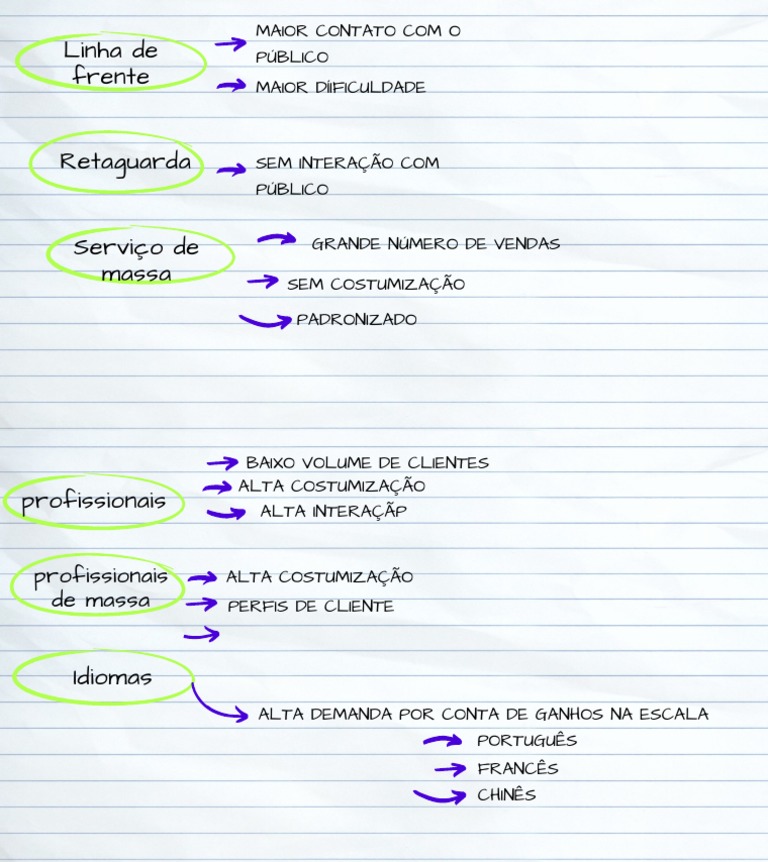 Linha de
frente
MAIOR CONTATO COM O
PÚBLICO
MAIOR DÍIFICULDADE
Retaguarda
SEM INTERAÇÃO COM
PÚBLICO
Serviço de
massa
GRANDE NÚMERO DE VENDAS
SEM COSTUMIZAÇÃO
PADRONIZADO
profissionais
BAIXO VOLUME DE CLIENTES
ALTA COSTUMIZAÇÃO
ALTA INTERAÇÃP
profissionais
de massa
ALTA COSTUMIZAÇÃO
PERFIS DE CLIENTE
Idiomas
ALTA DEMANDA POR CONTA DE GANHOS NA ESCALA
PORTUGUÊS
FRANCÊS
CHINÊS